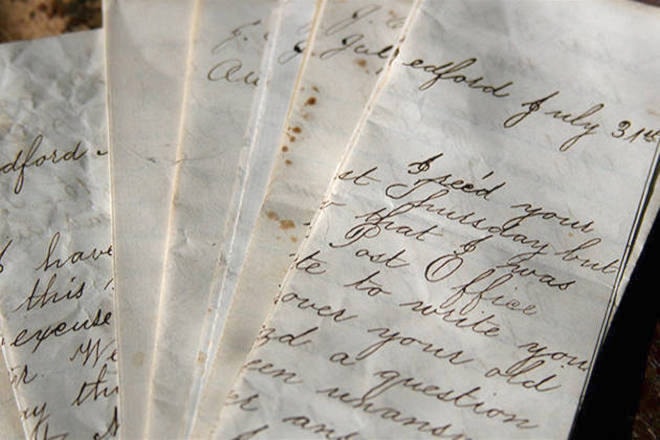 dford
I have
this
excuse
r. We
y thi
Au
J. 
Jul
edford July 31st
I rec'd your
st Thursday but
that I was
Post Office
te to write you
over your old
nd a question
een unansw
er an